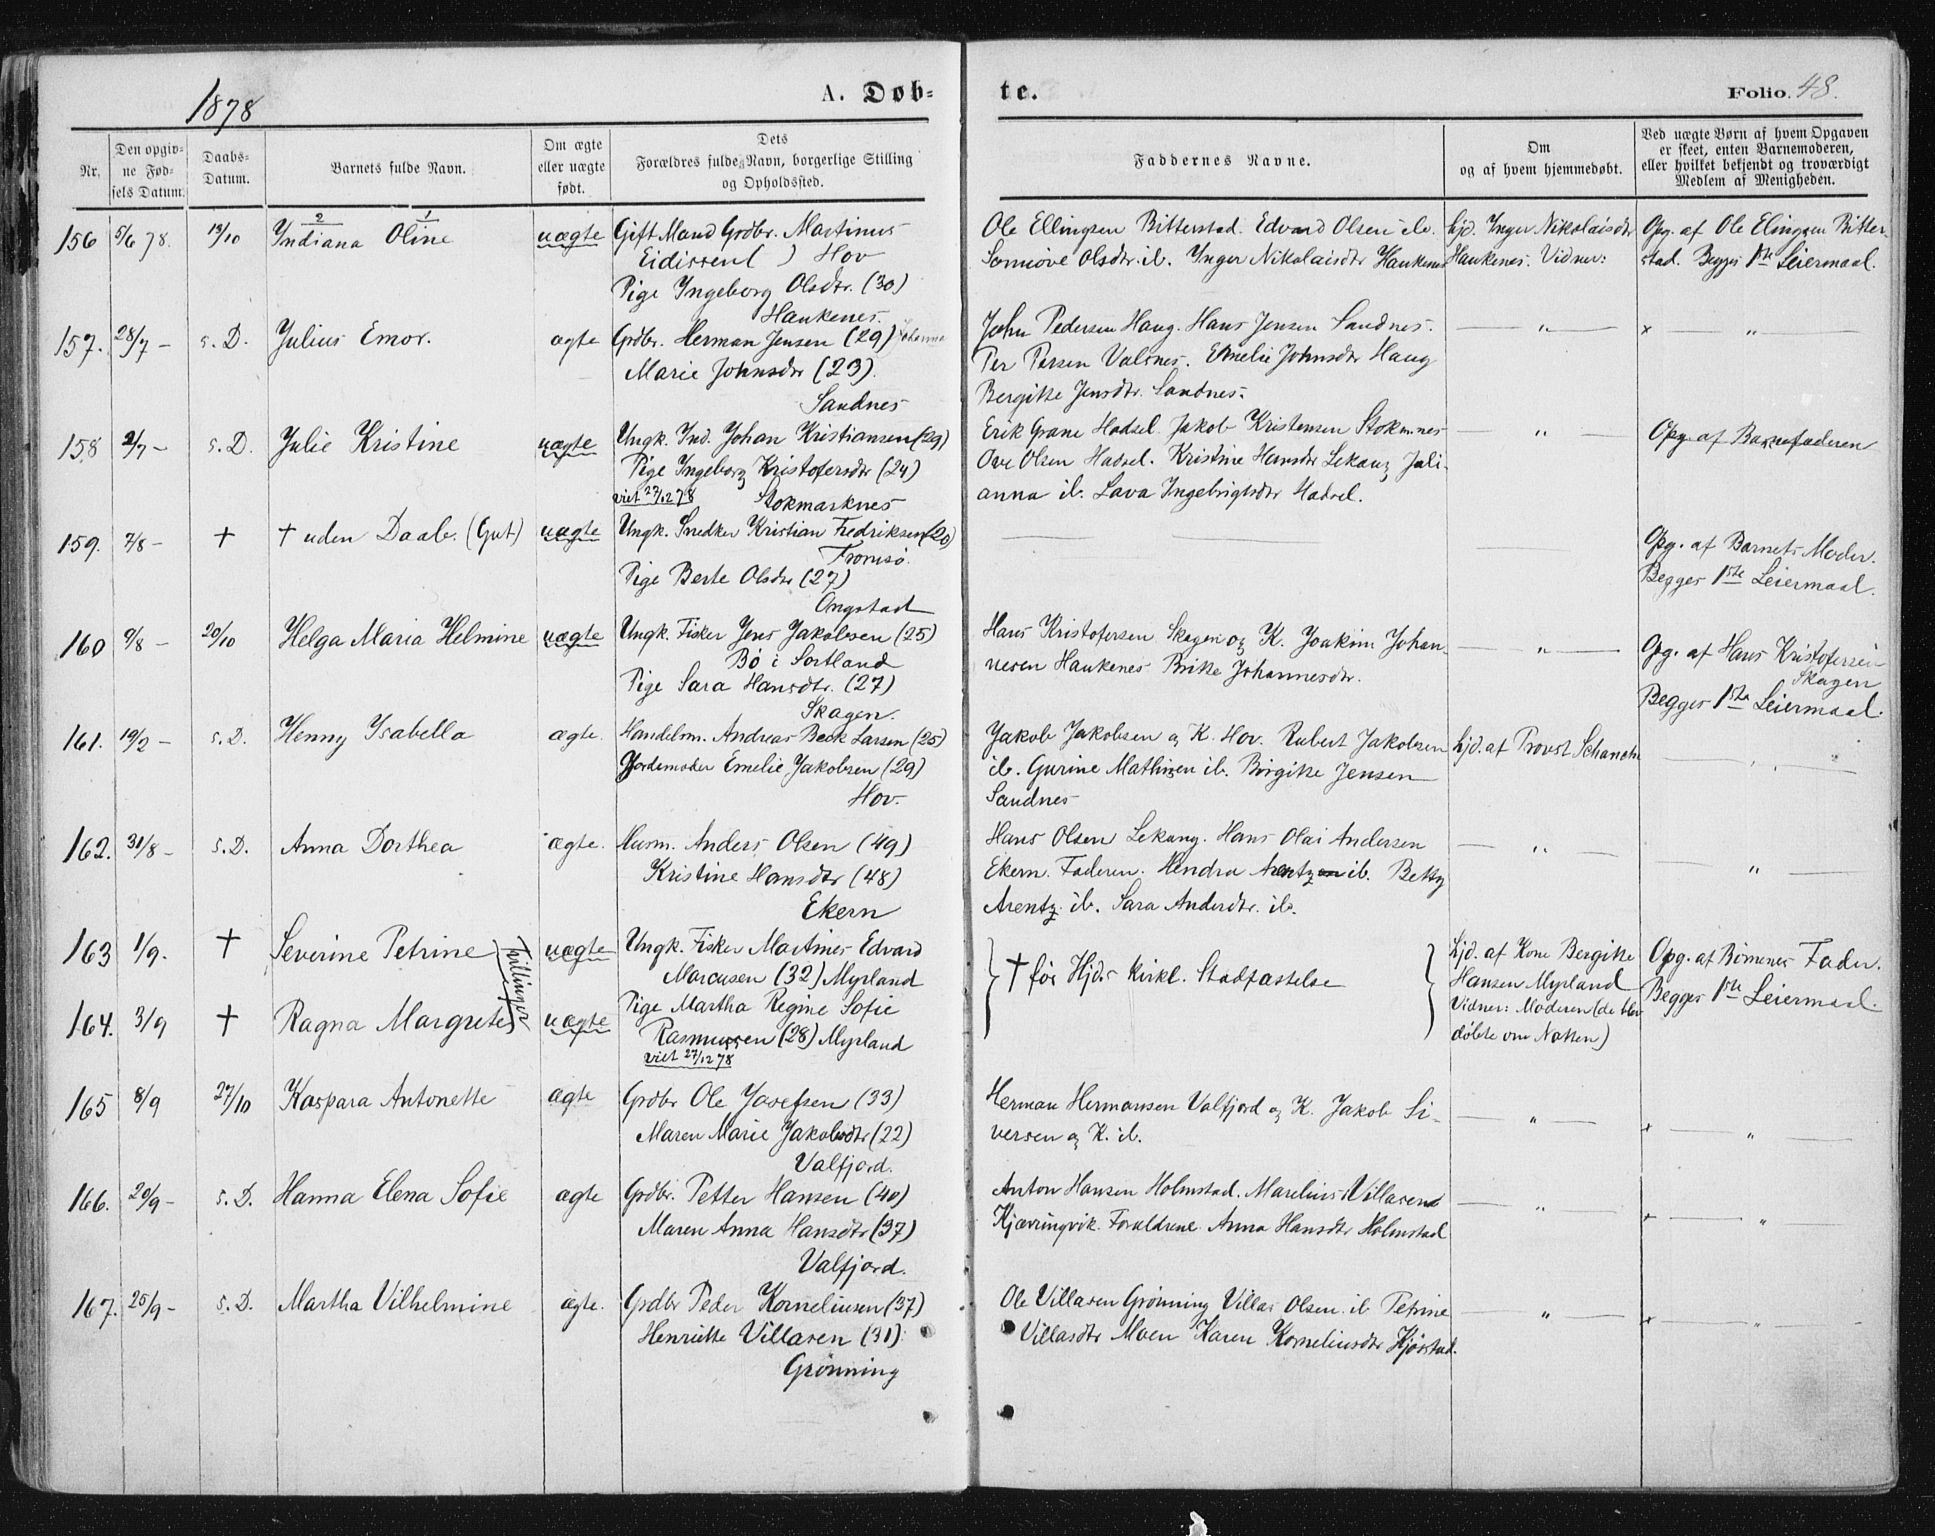 1878
A. Døb-
te.
Folio. 48.
Nr.
Den opgiv-
ne Fød-
sels Datum.
Daabs-
Datum.
Barnets fulde Navn.
Om ægte
eller uægte
født.
Dets
Forældres fulde Navn, borgerlige Stilling
og Opholdssted.
Faddernes Navne.
Om
og af hvem hjemmedøbt.
Ved uægte Børn af hvem Opgaven
er skeet, enten Barnemoderen,
eller hvilket bekjendt og troværdigt
Medlem af Menigheden.
156 5/6 78. 13/10 Indiana Oline uægte Gift Mand Grdbr. Martinus
2 1
Eidissen ( ) Hov
Pige Ingeborg Olsdtr. (30)
Haukenes.
Ole Ellingsen Bitterstad. Edvard Olsen ib.
ib. Inger Nikolaisdtr Haukenes
Hjd. Inger Nikolaisdtr
Haukenes. Vidner:
Opg. af Ole Elingsen Bitter-
stad. Begges 1ste Leiermaal.
157. 28/7 – s. D. Julius Emor. ægte Grdbr. Herman Jensen (29) Johanna
Marie Johnsdtr (23).
Sandnes
John Pedersen Haug. Hans Jensen Sandnes.
Per Persen Valsnes. Emelie Johnsdtr Haug
Bergitte Jensdtr. Sandnes.
— „ — x „ —
158 2/7 – s. D. Julie Kristine uægte Ungk. Ind. Johan Kristiansen (29)
Pige Ingeborg Kristofersdtr (24)
viet 27/12 78 Stokmarknes
Erik Grane Hadsel. Jakob Kristensen Stokmnes
Ove Olsen Hadsel. Kristine Hansdtr Lekang Juli-
anna ib. Lava Ingebrigtsdtr Hadsel.
— „ —
Opg. af Barnefaderen
159. 7/8 – † † uden Daab. (Gut) uægte Ungk. Snedker Kristian Fredriksen (20)
Tromsø.
Pige Berte Olsdtr (27)
Ongstad
Opg. af Barnets Moder.
Begges 1ste Leiermaal.
160 9/8 – 20/10 Helga Maria Helmine uægte Ungk. Fisker Jens Jakobsen (25)
Bø i Sortland
Pige Sara Hansdtr. (27)
Skagen.
Hans Kristofersen Skagen og K. Joakim Johan-
nesen Haukenes Britte Johannesdtr.
— „ —
Opg. af Hans Kristofersen
Skagen
Begges 1ste Leiermaal.
161. 19/2 – s. D. Henny Isabella ægte. Handelsm. Andreas Beck Larsen (25)
Jordemoder Emelie Jakobsen (29)
Hov.
Jakob Jakobsen og K. Hov. Rubert Jakobsen
ib. Gurine Mathisen ib. Birgitte Jensen
Sandnes
Hjd. af Provst Schanche
162. 31/8 – s. D. Anna Dorthea ægte. Husm. Anders Olsen (49)
Kristine Hansdtr (48)
Ekern
Hans Olsen Lekang. Hans Olai Andersen
Ekern. Faderen. Hendra Arentz ib. Betty
Arentz ib. Sara Andersdtr. ib.
— „ — „ —
163 1/9. † Severine Petrine uægte Ungk. Fisker Martines Edvard
Tvillinger
Marcusen (32) Myrland
164. 3/9 † Ragna Margrete uægte Pige Martha Regine Sofie
Rasmussen (28) Myrland
viet 27/12 78
† før Hjds kirkl. Stadfæstelse
Hjd. af Kone Bergitte
Hansen Myrland
Vidner: Moderen (de blev
døbte om Natten)
Opg. af Børnenes Fader.
Begges 1ste Leiermaal.
165 8/9 27/10 Kaspara Antonette ægte Grdbr Ole Josefsen (33)
Maren Marie Jakobsdtr (22)
Valfjord.
Herman Hermansen Valfjord og K. Jakob Si-
versen og K. ib.
— „ — x — „ —
166. 20/9 – s. D. Hanna Elena Sofie ægte Grdbr. Petter Hansen (40)
Maren Anna Hansdtr (37)
Valfjord.
Anton Hansen Holmstad. Marelius Villassen
Kjærringvik. Forældrene. Anna Hansdtr Holmstad
— „ — x — „
167. 25/9 – s. D. Martha Vilhelmine ægte. Grdbr Peder Korneliusen (37)
Henriette Villasen (31)
Grønning
Ole Villasen Grønning Villas Olsen ib Petrine
Villasdtr Moen Karen Korneliusdtr Kjørstad.
— „ — x — „ —